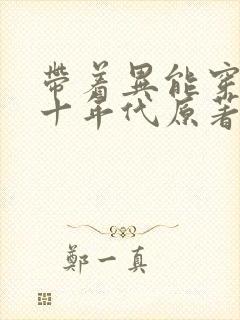 帶着異能穿
十年代原著
鄭一真